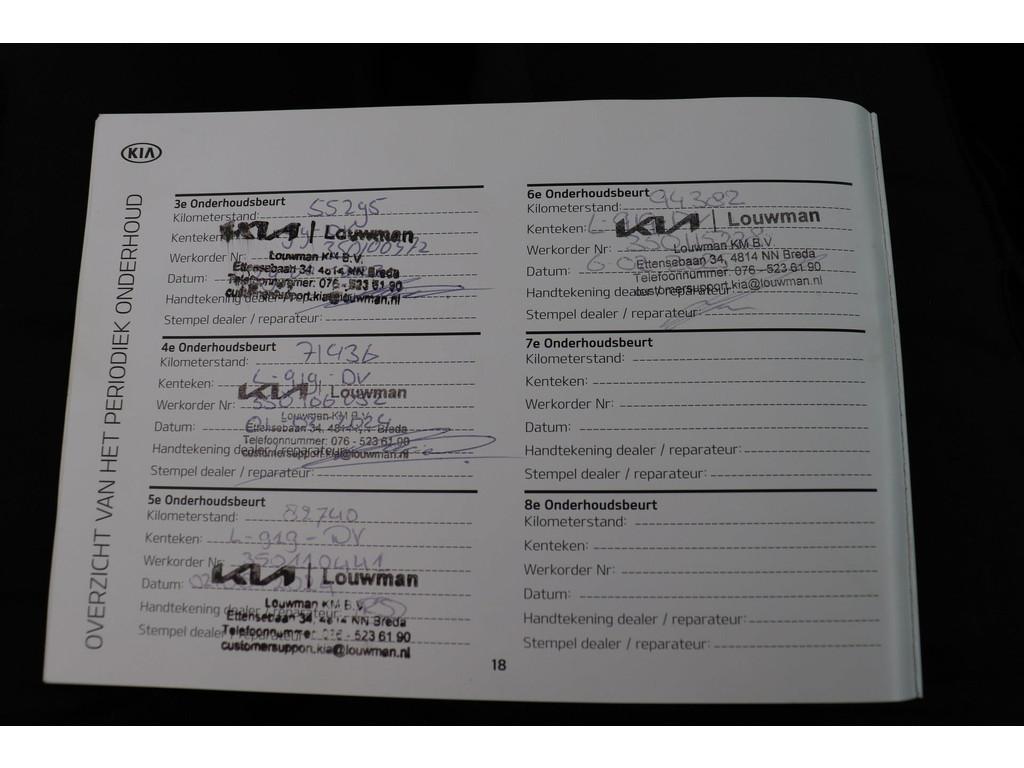 KIA
OVERZICHT VAN HET PERIODIEK ONDERHOUD
3e Onderhoudsbeurt
Kilometerstand: 55295
Kenteken:
KIA | Louwman
Werkorder Nr:
Louwman KM B.V.
Datum:
Ettensebaan 34, 4814 NN Breda
Telefoonnummer: 076 - 523 61 90
Handtekening dealer / reparateur:
customersupport.kia@louwman.nl
Stempel dealer / reparateur:
4e Onderhoudsbeurt
Kilometerstand: 71436
Kenteken: L-919-DV
KIA | Louwman
Werkorder Nr:
Louwman KM B.V.
Datum:
Ettensebaan 34, 4814 NN Breda
Telefoonnummer: 076 - 523 61 90
Handtekening dealer / reparateur:
customersupport.kia@louwman.nl
Stempel dealer / reparateur:
5e Onderhoudsbeurt
Kilometerstand: 82740
Kenteken: L-919-DV
Werkorder Nr: 350110441
KIA | Louwman
Datum:
Louwman KM B.V.
Handtekening dealer / reparateur:
Ettensebaan 34, 4814 NN Breda
Stempel dealer / reparateur:
Telefoonnummer: 076 - 523 61 90
customersupport.kia@louwman.nl
6e Onderhoudsbeurt
Kilometerstand: 94302
Kenteken:
KIA | Louwman
Werkorder Nr:
Louwman KM B.V.
Datum:
Ettensebaan 34, 4814 NN Breda
Telefoonnummer: 076 - 523 61 90
Handtekening dealer / reparateur:
customersupport.kia@louwman.nl
Stempel dealer / reparateur:
7e Onderhoudsbeurt
Kilometerstand:
Kenteken:
Werkorder Nr:
Datum:
Handtekening dealer / reparateur:
Stempel dealer / reparateur:
8e Onderhoudsbeurt
Kilometerstand:
Kenteken:
Werkorder Nr:
Datum:
Handtekening dealer / reparateur:
Stempel dealer / reparateur:
18